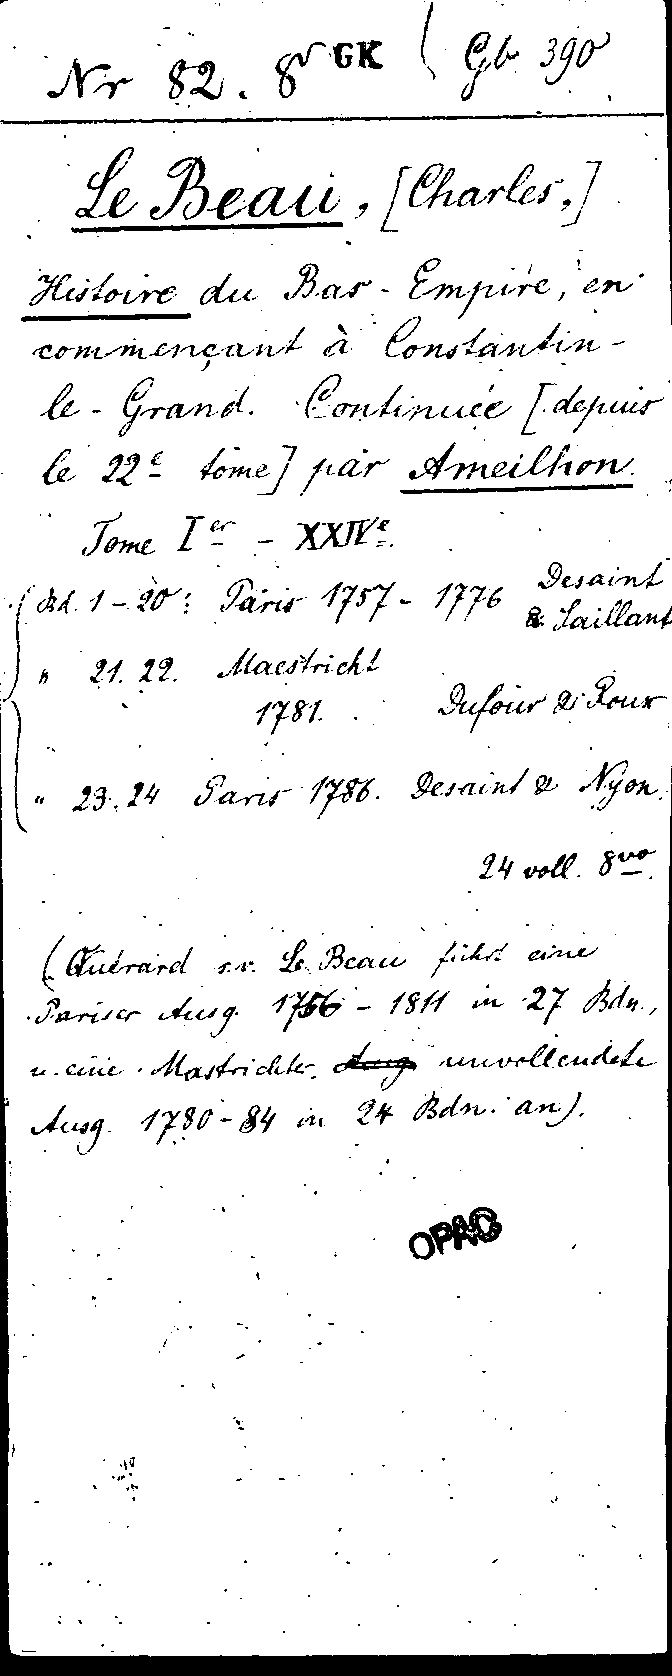 Nr 82. 8º GK ( Gb 390
Le Beau, [Charles,]
Histoire du Bas-Empire, en
commençant à Constantin-
le-Grand. Continuée [depuis
le 22e tome] par Ameilhon.
Tome Ier - XXIVe.
Bd. 1-20: Paris 1757-1776 Desaint
& Saillant
" 21. 22. Maestricht
1781. Dufour & Roux
" 23. 24 Paris 1786. Desaint & Nyon.
24 voll. 8vo.
(Quérard s.v. Le Beau führt eine
Pariser Ausg. 1756-1811 in 27 Bdn.,
u. eine Mastrichter Ausg unvollendete
Ausg. 1780-84 in 24 Bdn. an).
OPAC